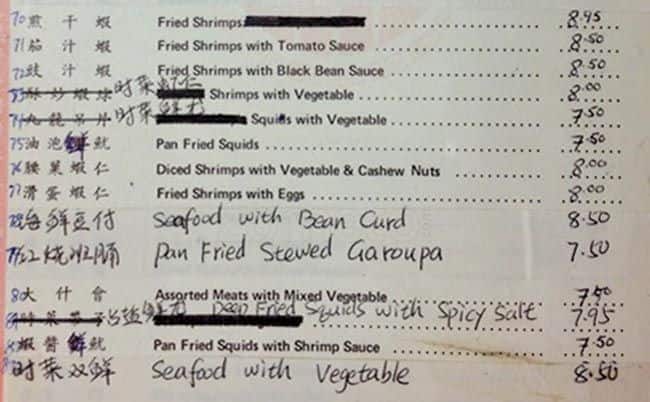 70 煎干蝦 Fried Shrimps 8.95
71 茄汁蝦 Fried Shrimps with Tomato Sauce 8.50
72 豉汁蝦 Fried Shrimps with Black Bean Sauce 8.50
73 时菜虾仁 Shrimps with Vegetable 8.00
74 时菜鲜尤 Squids with Vegetable 7.50
75 油泡鲜魷 Pan Fried Squids 7.50
76 腰菓蝦仁 Diced Shrimps with Vegetable & Cashew Nuts 8.00
77 滑蛋蝦仁 Fried Shrimps with Eggs 8.00
78 海鲜豆付 Seafood with Bean Curd 8.50
79 红烧班腩 Pan Fried Stewed Garoupa 7.50
80 大什會 Assorted Meats with Mixed Vegetable 7.50
鲜尤 Deep Fried Squids with Spicy Salt 7.95
蝦醬鲜魷 Pan Fried Squids with Shrimp Sauce 7.50
时菜双鲜 Seafood with Vegetable 8.50